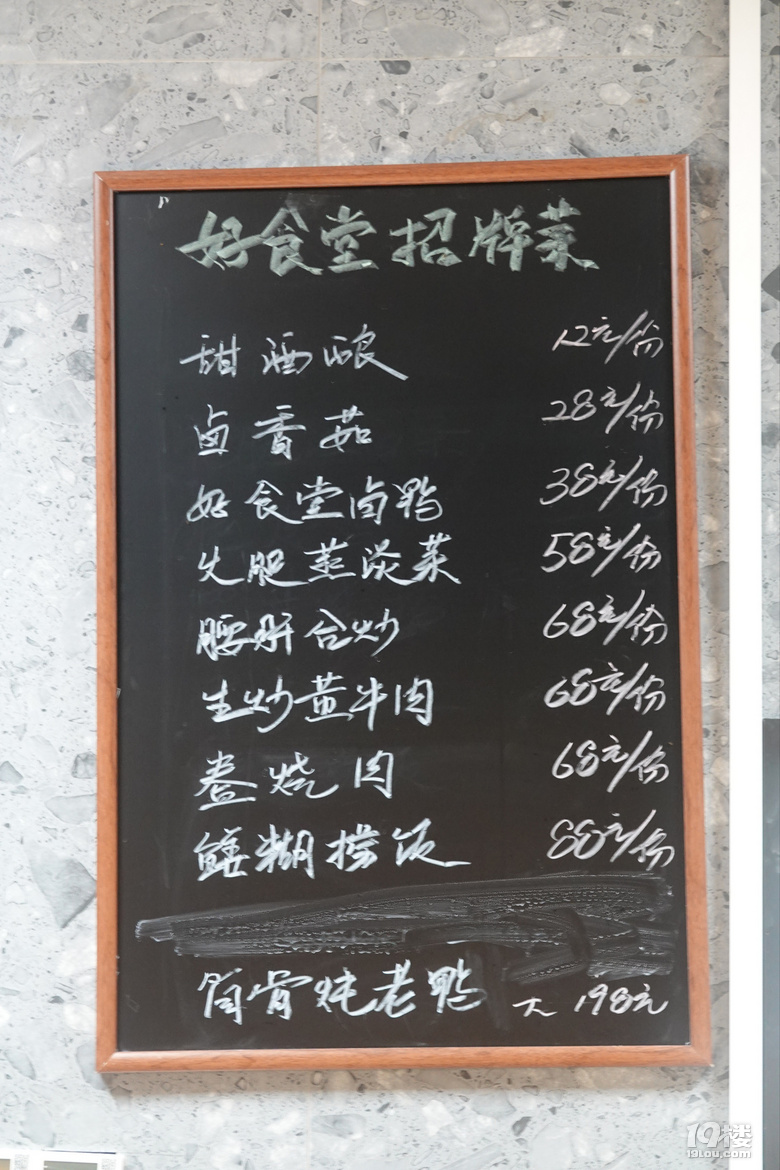 好食堂招牌菜
甜酒酿 12元/份
卤香菇 28元/份
好食堂卤鸭 38元/份
火腿蒸淡菜 58元/份
腰肝合炒 68元/份
生炒黄牛肉 68元/份
鲞烧肉 68元/份
鳝糊捞饭 88元/份
筒骨炖老鸭 大 198元
19楼
19lou.com